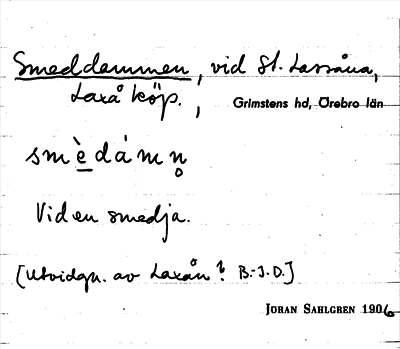 Smeddammen, vid St. Lassåna,
Laxå köp.,
Grimstens hd, Örebro län
smèdámn̥
Vid en smedja.
[Utvidgn. av Laxån? B.-J.D.]
JÖRAN SAHLGREN 1906